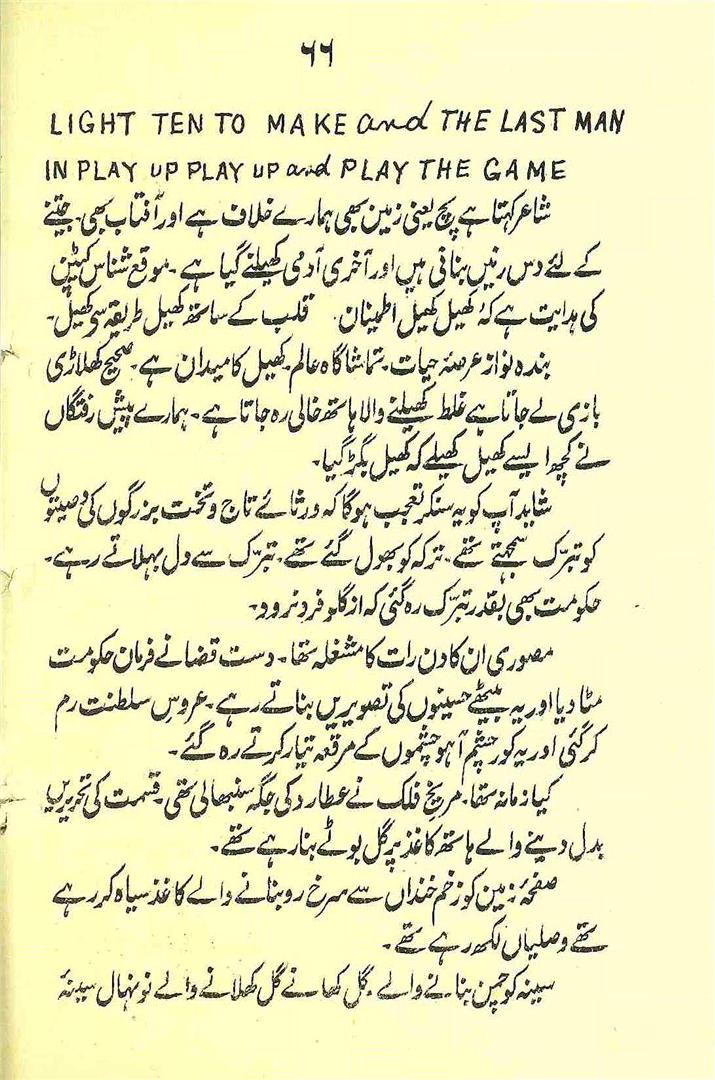 ۶۶
LIGHT TEN TO MAKE and THE LAST MAN
IN PLAY UP PLAY UP and PLAY THE GAME
شاعر کہتا ہے پچ یعنی زمین بھی ہمارے خلاف ہے اور آفتاب بھی۔ جیتنے
کے لئے دس رنیں بنانی ہیں اور آخری آدمی کھیلنے گیا ہے۔ موقع شناس کپٹن
کی ہدایت ہے کہ کھیل کھیل اطمینان قلب کے ساتھ کھیل طریقہ سے کھیل۔
بندہ نواز عرصۂ حیات۔ تماشا گاہ عالم۔ کھیل کا میدان ہے۔ صحیح کھلاڑی
بازی لے جاتا ہے غلط کھیلنے والا ہاتھ خالی رہ جاتا ہے۔ ہمارے پیش رفتگاں
نے کچھ ایسے کھیل کھیلے کہ کھیل بگڑ گیا۔
شاید آپ کو یہ سنکر تعجب ہوگا کہ ورثائے تاج و تخت بزرگوں کی وصیتوں
کو تبرّک سمجھتے تھے۔ ترکہ کو بھول گئے تھے۔ تبرّک سے دل بہلاتے رہے۔
حکومت بھی بقدر تبرّک رہ گئی کہ از گلو فرد نرود۔
مصوری ان کا دن رات کا مشغلہ تھا۔ دست قضا نے فرمان حکومت
مٹا دیا اور یہ بیٹھے حسینوں کی تصویریں بناتے رہے۔ عروسِ سلطنت رم
کر گئی اور یہ کور چشم آہو چشموں کے مرقعہ تیار کرتے رہ گئے۔
کیا زمانہ تھا۔ مریخ فلک نے عطارد کی جگہ سنبھالی تھی۔ قسمت کی تحریریں
بدل دینے والے ہاتھ کاغذ پر گل بوٹے بنا رہے تھے۔
صفحۂ زمین کو زخم خنداں سے سرخ رو بنانے والے کاغذ سیاہ کر رہے
تھے وصلیاں لکھ رہے تھے۔
سینہ کو چمن بنانے والے۔ گل کھانے گل کھلانے والے نونہال سینۂ